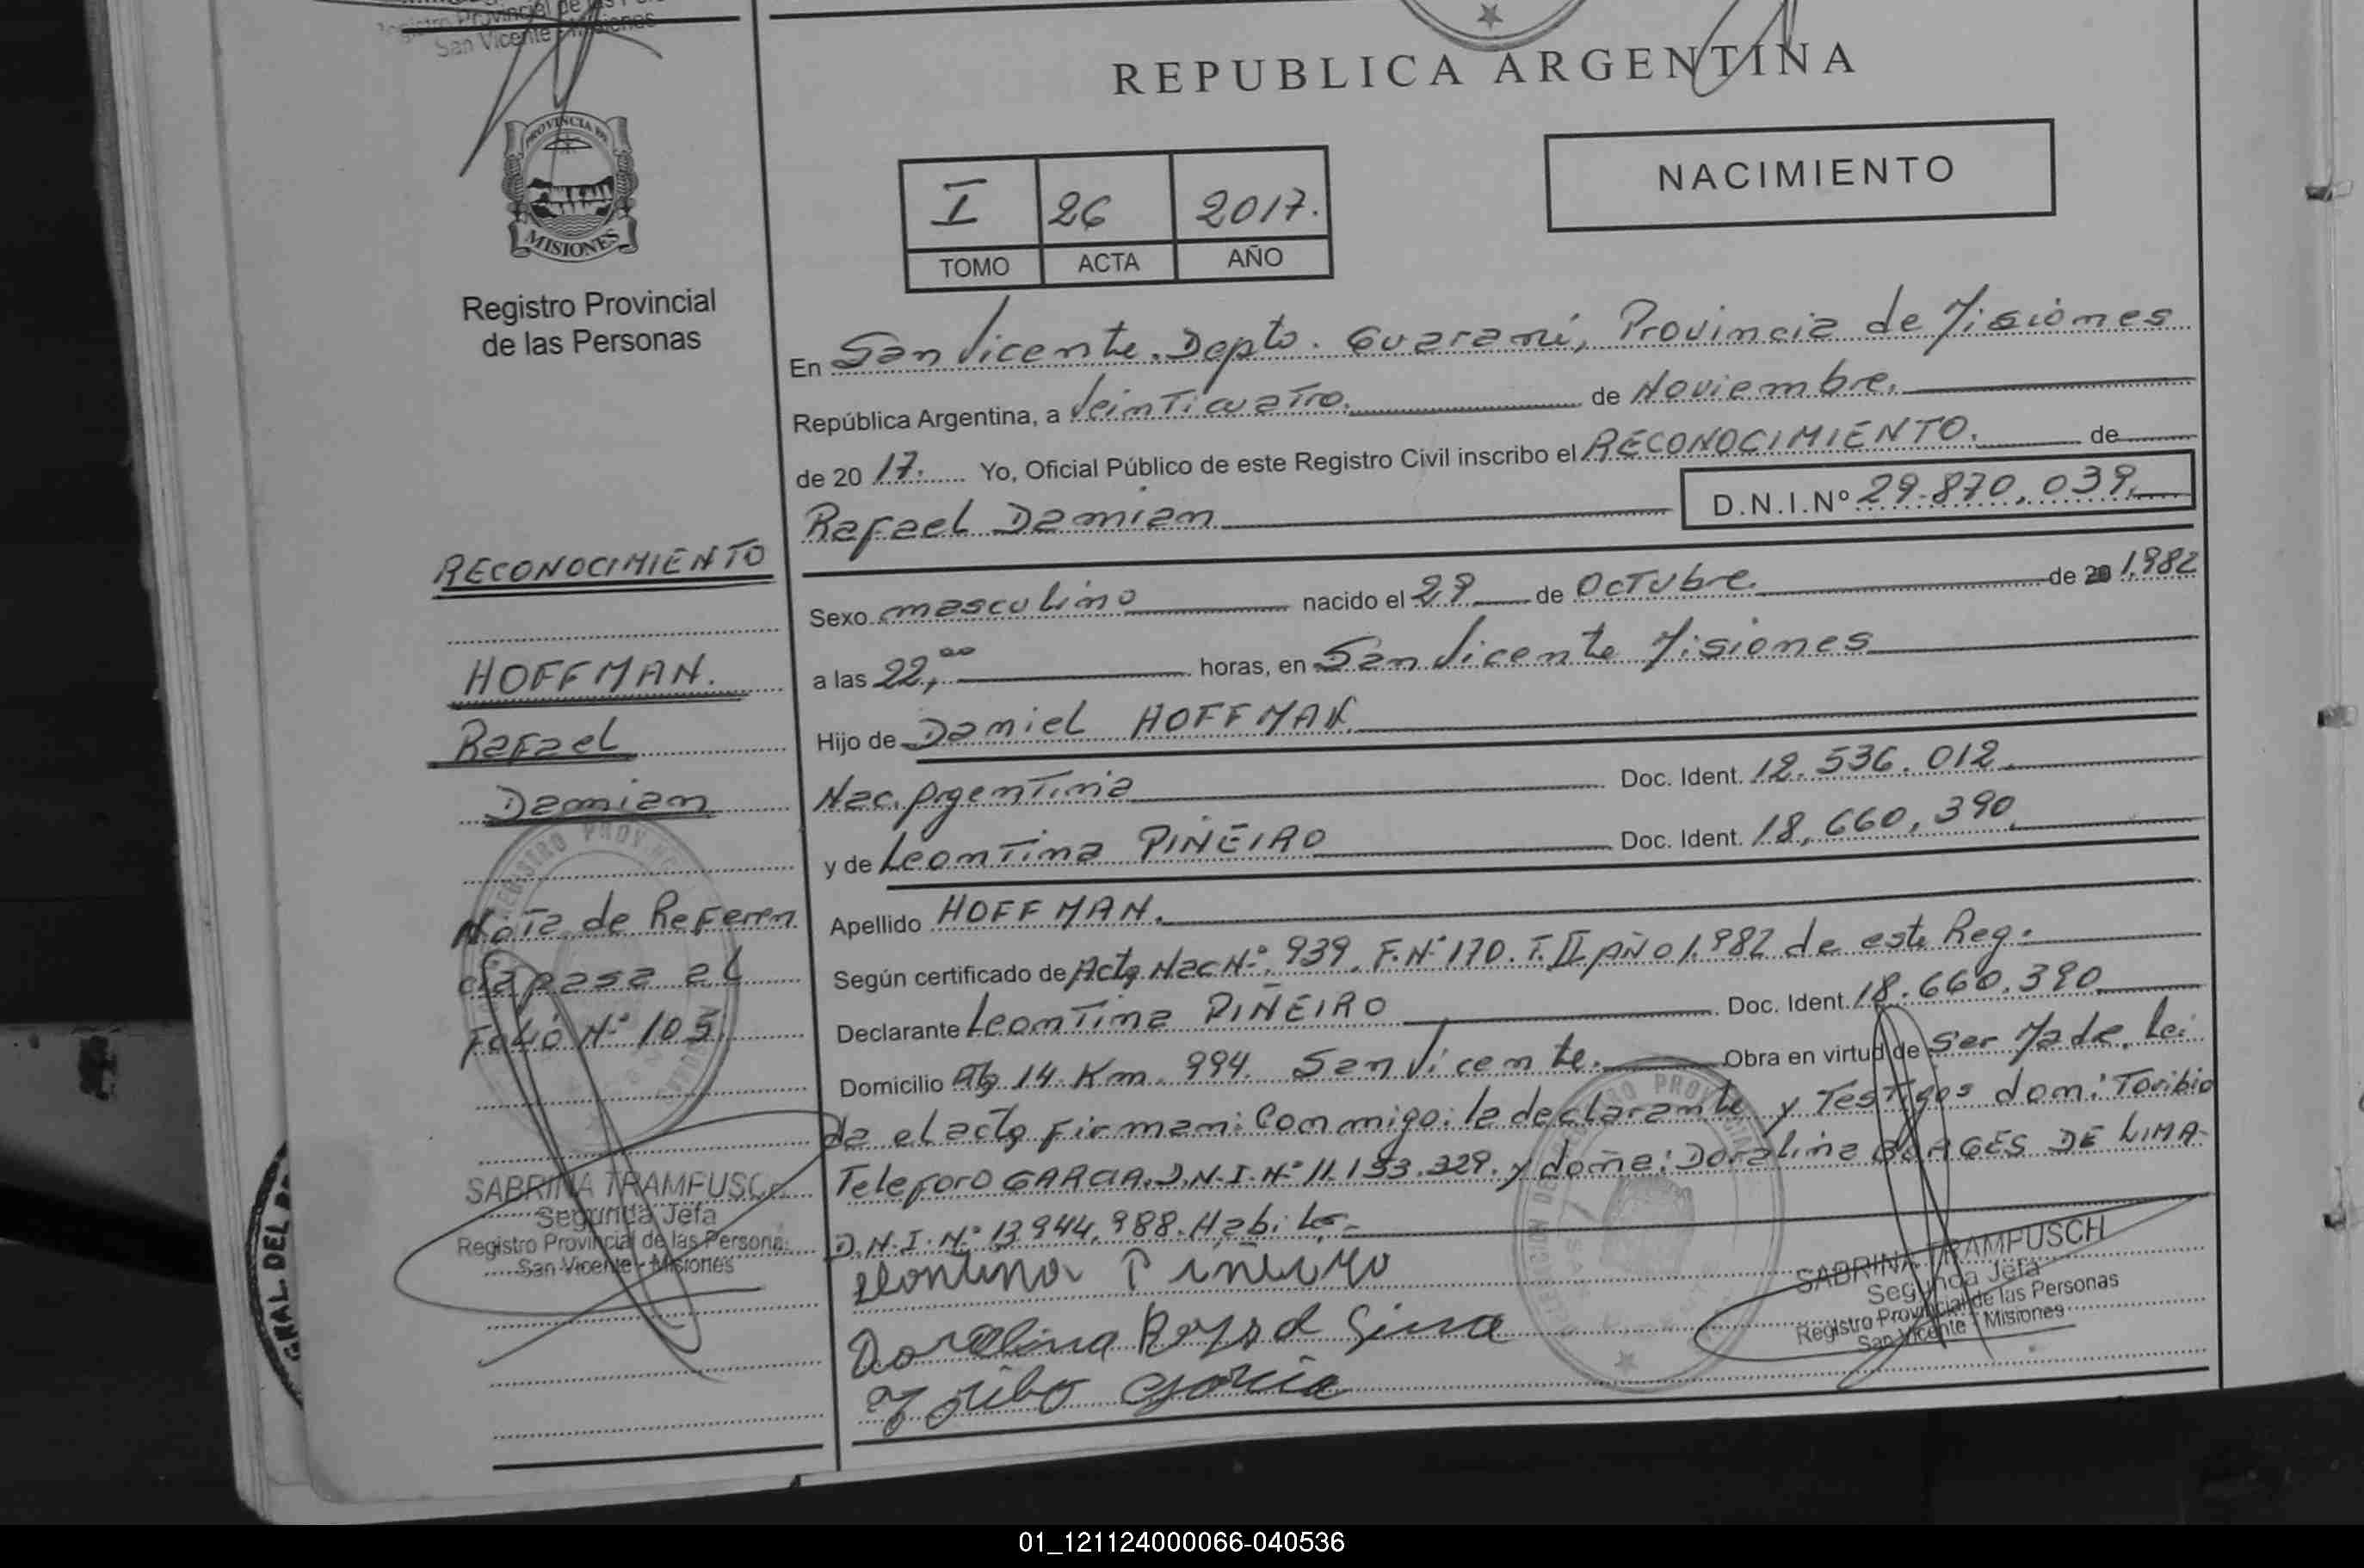 Registro Provincial de las
San Vicente - Misiones
REPUBLICA ARGENTINA
PROVINCIA DE
MISIONES
Registro Provincial
de las Personas
I 26 2017.
TOMO ACTA AÑO
NACIMIENTO
En San Vicente. Depto. Guaraní, Provincia de Misiones
República Argentina, a Veinticuatro. de Noviembre.
de 20 17. Yo, Oficial Público de este Registro Civil inscribo el RECONOCIMIENTO. de
Rafael Damian D.N.I.Nº 29.870.039.
Sexo masculino nacido el 29 de Octubre. de 20 1.982
a las 22,00 horas, en San Vicente Misiones
Hijo de Daniel HOFFMAN.
Nac. Argentina Doc. Ident. 12.536.012.
y de Leontina PIÑEIRO Doc. Ident. 18,660,390.
Apellido HOFFMAN.
Según certificado de Acta Nac Nº. 939. F.Nº 170. T. II AÑO 1.982 de este Reg.
Declarante Leontina PIÑEIRO Doc. Ident. 18.660.390.
Domicilio Rta 14. Km. 994. San Vicente. Obra en virtud de Ser Madre. Lei
da el acta Firman: Conmigo: la declarante y Testigos don: Toribio
Teleforo GARCIA. D.N.I. Nº 11.153.229. y doña: Doralina BORGES DE LIMA-
D.N.I. Nº 13.944.988. Habiles.-
Leontina Piñeiro
Doralina
Toribo Garcia
RECONOCIMIENTO
HOFFMAN.
Rafael
Damian
Nota de Referen
cia pasa al
Folio Nº 103.
SABRINA TRAMPUSCH
Segunda Jefa
Registro Provincial de las Personas
San Vicente - Misiones
SABRINA TRAMPUSCH
Segunda Jefa
Registro Provincial de las Personas
San Vicente - Misiones
GRAL. DEL
01_121124000066-040536